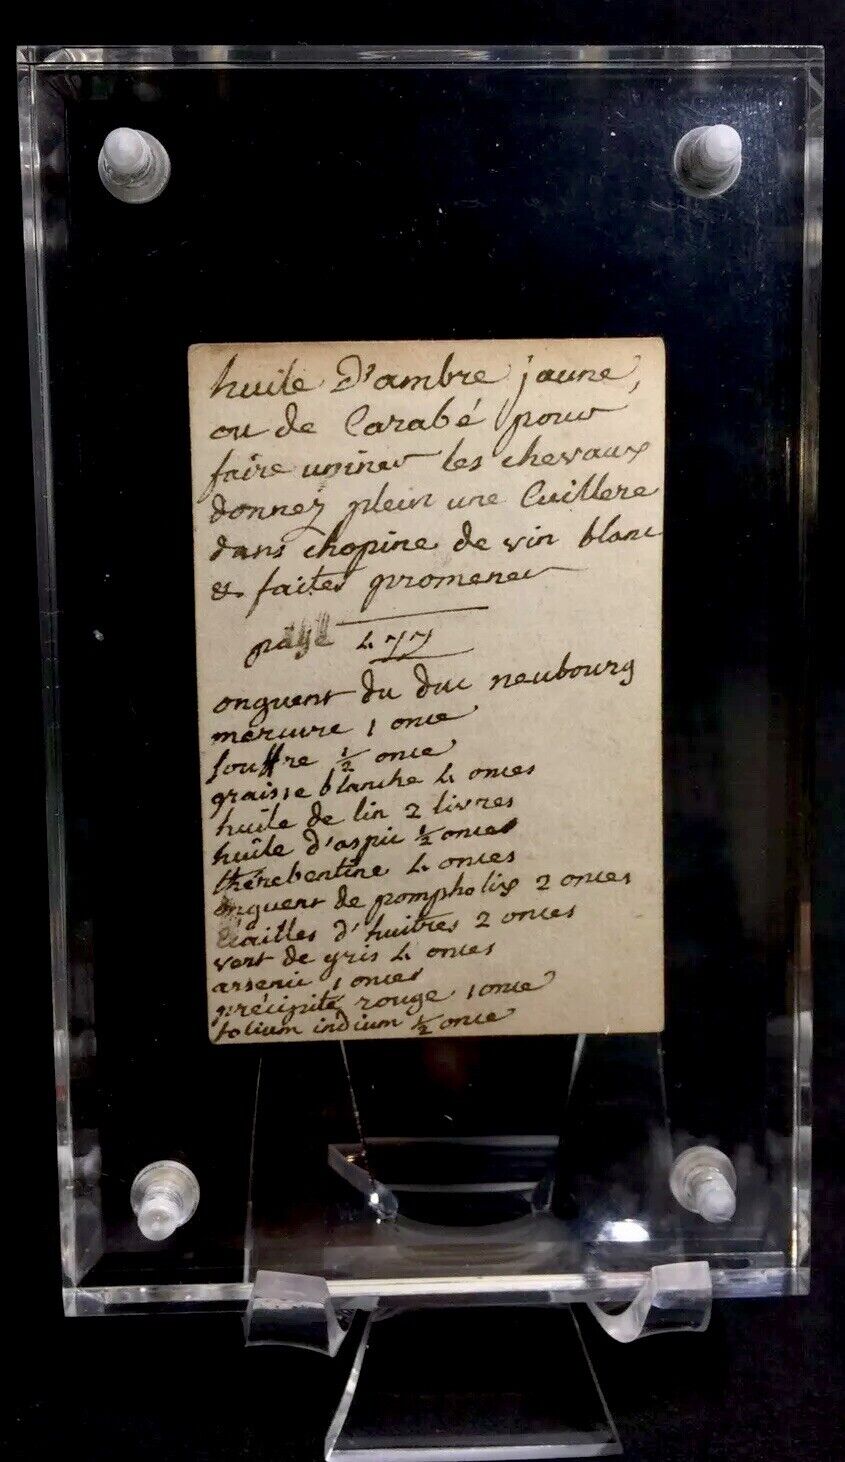 huile D'ambre jaune,
ou de Carabé pour
faire uriner les chevaux
donnez plein une Cuillere
dans chopine de vin blanc
et faites promener
page 477
onguent du duc neubourg
mercure 1 once
souffre ½ once
graisse blanche 4 onces
huile de lin 2 livres
huile d'aspic ½ once
thérébentine 4 onces
onguent de pompholix 2 onces
écailles d'huitres 2 onces
vert de gris 4 onces
arsenic 1 onces
précipité rouge 1 once
folium indium ½ once